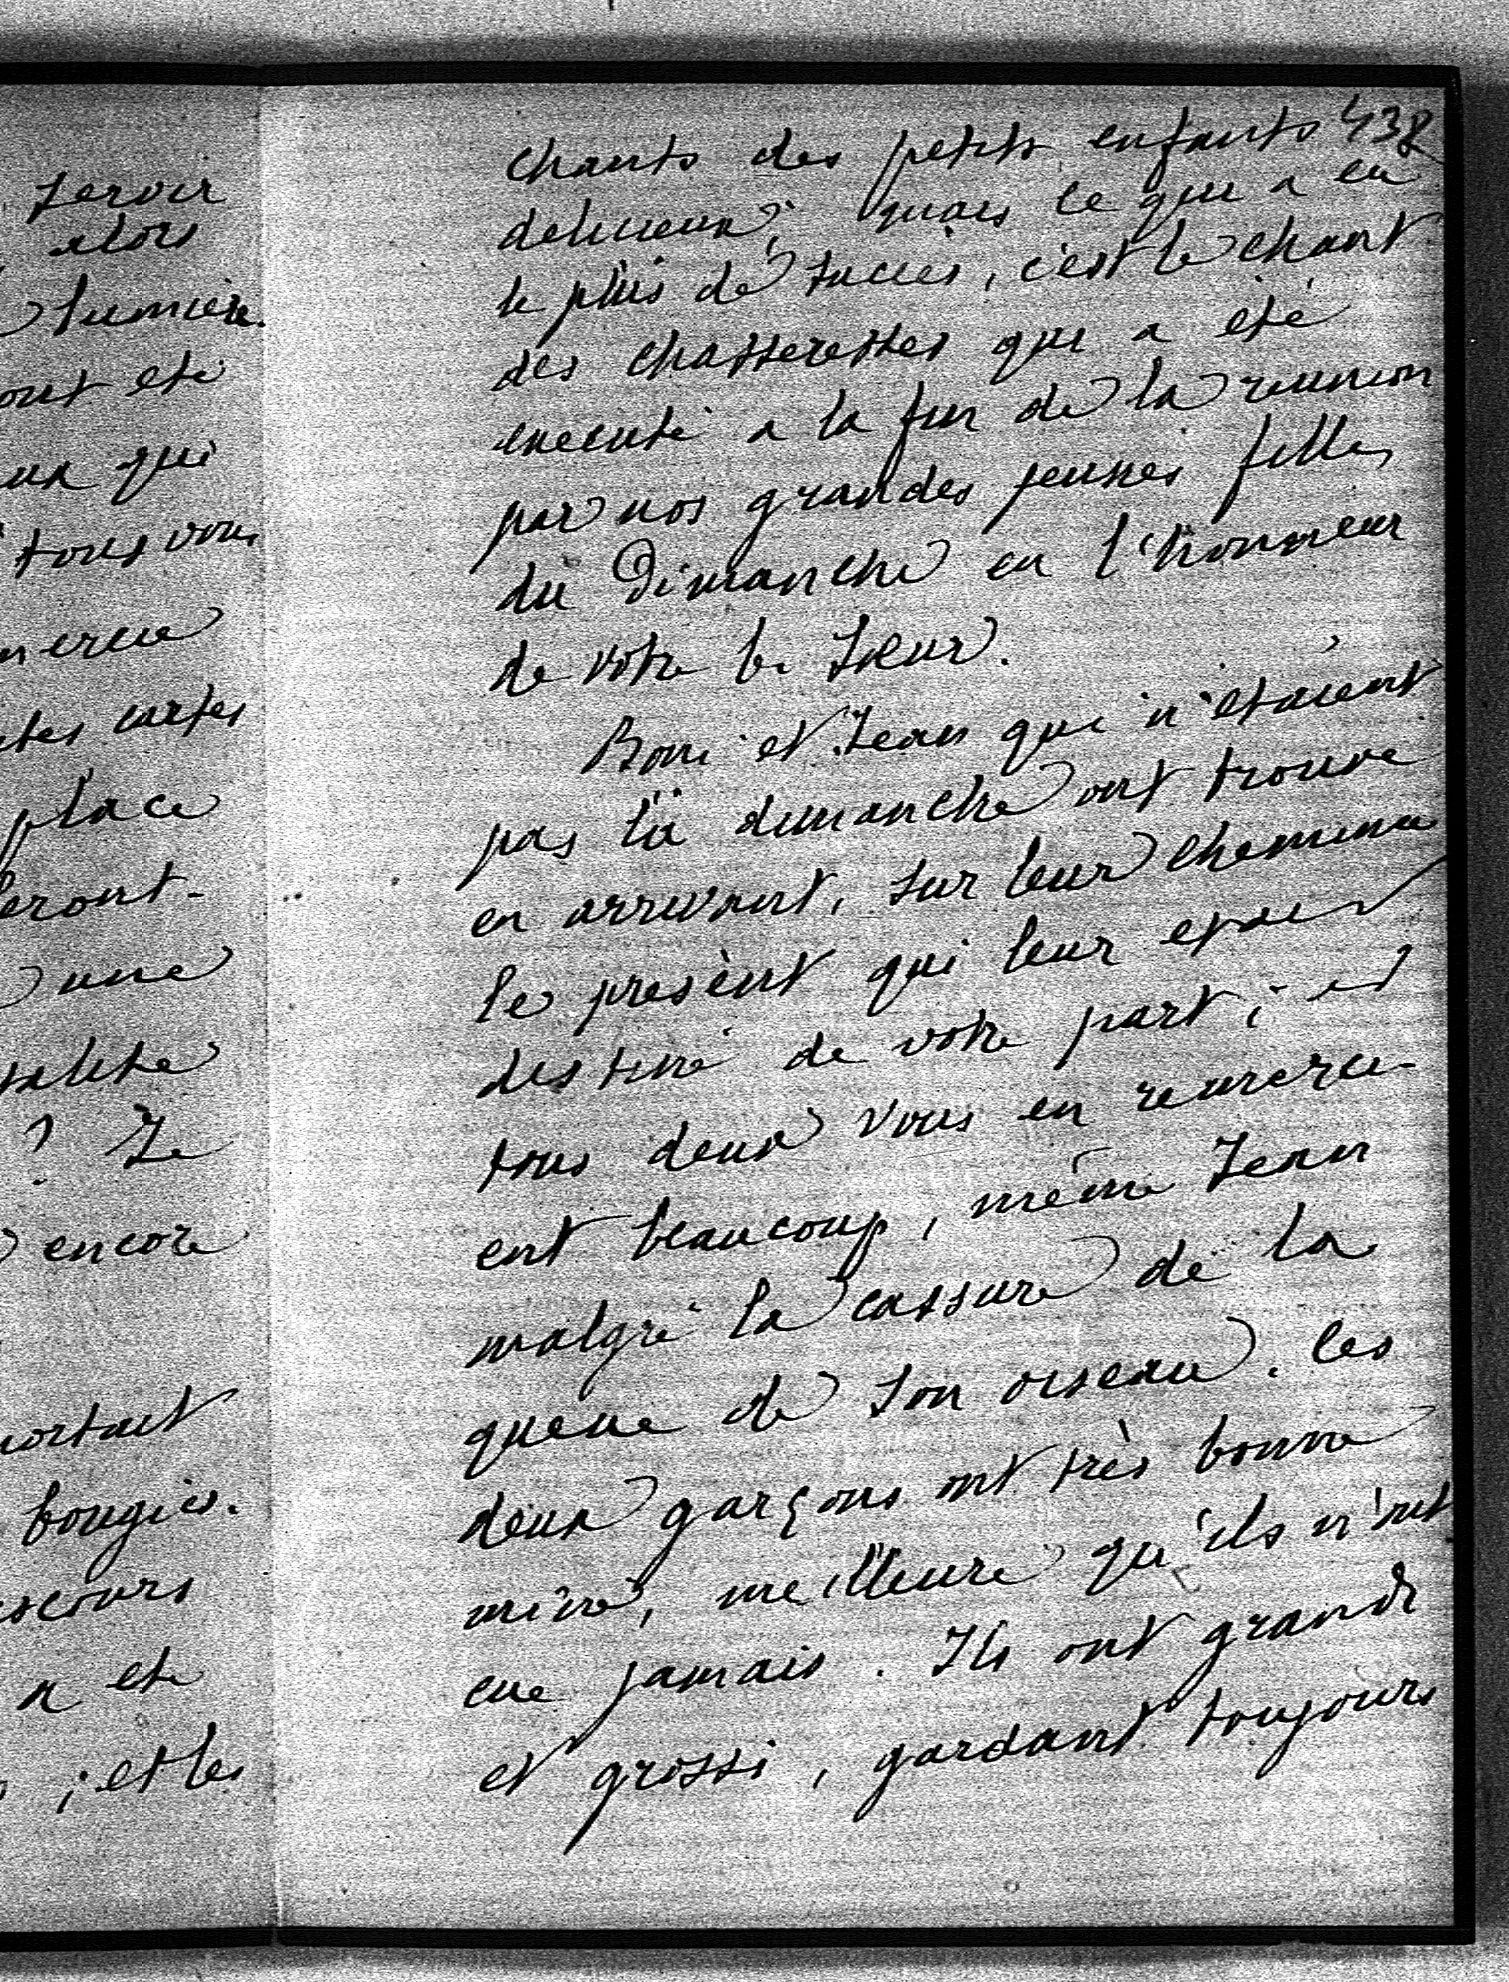 servir
alors
lumière.
ont été
aux qui
tous vous
mercie
ites cartes
place
eront-
une
? Je
encore
portait
bougies.
scours
a été
; et les
438
chants des petits enfants
delicieux; mais ce qui a eu
le plus de succès, c'est le chant
des chasseresses qui a été
executé a la fin de la reunion
par nos grandes jeunes filles
du Dimanche en l'honneur
de votre b. Soeur.
et Jean qui n'étaient
pas là dimanche ont trouve
en arrivant, sur leur cheminée
le present qui leur etait
destiné de votre part; et
tous deux vous en remerci-
ent beaucoup, même Jean
malgré la cassure de la
queue de son oiseau. Les
deux garçons ont très bonne
mine, meilleure qu'ils n'ont
eue jamais. Ils ont grandi
et grossi, gardant toujours